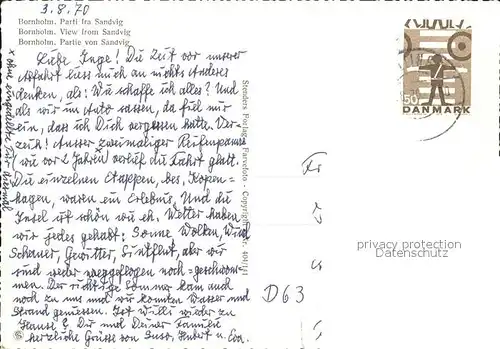 3.8.70
Bornholm. Parti fra Sandvig
Bornholm. View from Sandvig
Bornholm. Partie von Sandvig
Liebe Inge! Die Zeit vor unserer
Abfahrt liess mich an nichts Anderes
denken, als: Wie schaffe ich alles? Und
als wir im Auto sassen, da fiel mir
ein, dass ich Dich vergessen hatte. Ver-
zeih! Ausser zweimaliger Reifenpanne
wie vor 2 Jahren x verlief die Fahrt glatt.
Die einzelnen Etappen, bes. Kopen-
hagen, waren ein Erlebnis. Und die
Insel ist schön wie eh. Wetter haben
wir jedes gehabt: Sonne Wolken, Wind
Schauer, Gewitter, Sintflut, aber wir
sind weder weggeflogen noch = geschwom-
men. Der richtige Sommer kam auch
noch zu uns und wir konnten Wasser und
Strand geniessen. Ist Willi wieder zu
Hause? Dir und Deiner Familie
herzliche Grüsse von Suso, Hubert u. Eva.
x ohne Tür diesmal
Stenders Forlag. Farvefoto - Copyright Nr. 404/141
50
DANMARK
privacy protection
Datenschutz
D63